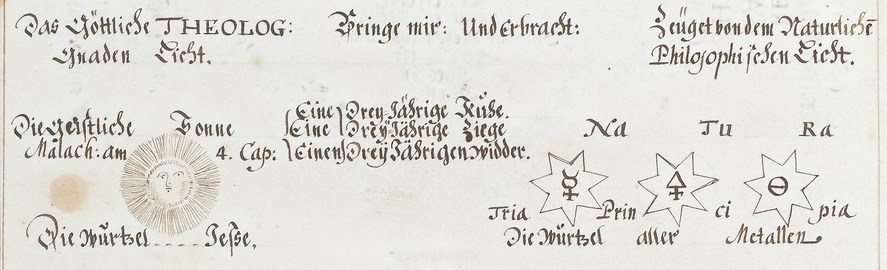 Das Göttliche THEOLOG: Bringe mir: Und Er bracht: Zeüget von dem Naturlichē
Gnaden Licht. Philosophischen Licht.
Eine Dreÿ Jährige Kuhe.
Die Geistliche Sonne Eine Dreÿ Jährige Ziege Na Tu Ra
Malach: am 4. Cap: Einen Dreÿ Jährigen Widder.
Tria Prin ci pia
Die Würtzel ..... Jesse, Die Würtzel aller Metallen